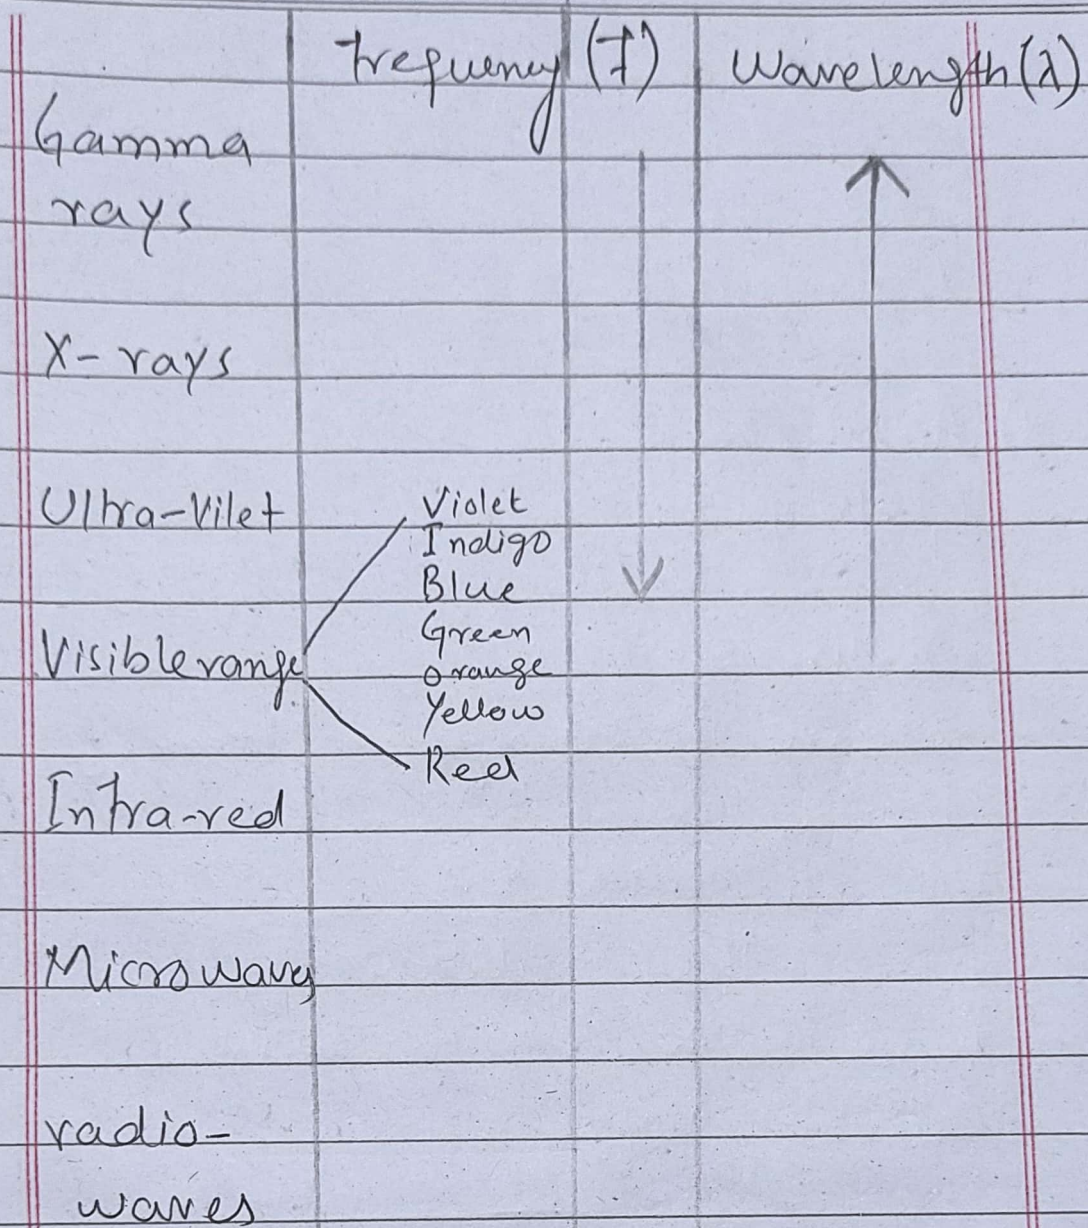 frequency (f) Wavelength (λ)
Gamma
rays
X-rays
Ultra-Vilet
Violet
Indigo
Blue
Green
Visible range
orange
Yellow
Red
Infra-red
Microwaves
radio-
waves